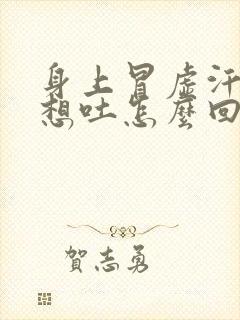 身上冒虛汗
想吐怎麼回
賀志勇